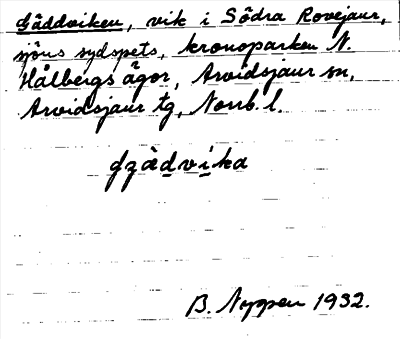 Gäddviken, vik i Södra Rovejaur,
sjöns sydspets, kronoparken N.
Hålbergs ägor, Arvidsjaur sn,
Arvidsjaur tg, Norrb. l.
gzädvika
B. Nyppen 1932.